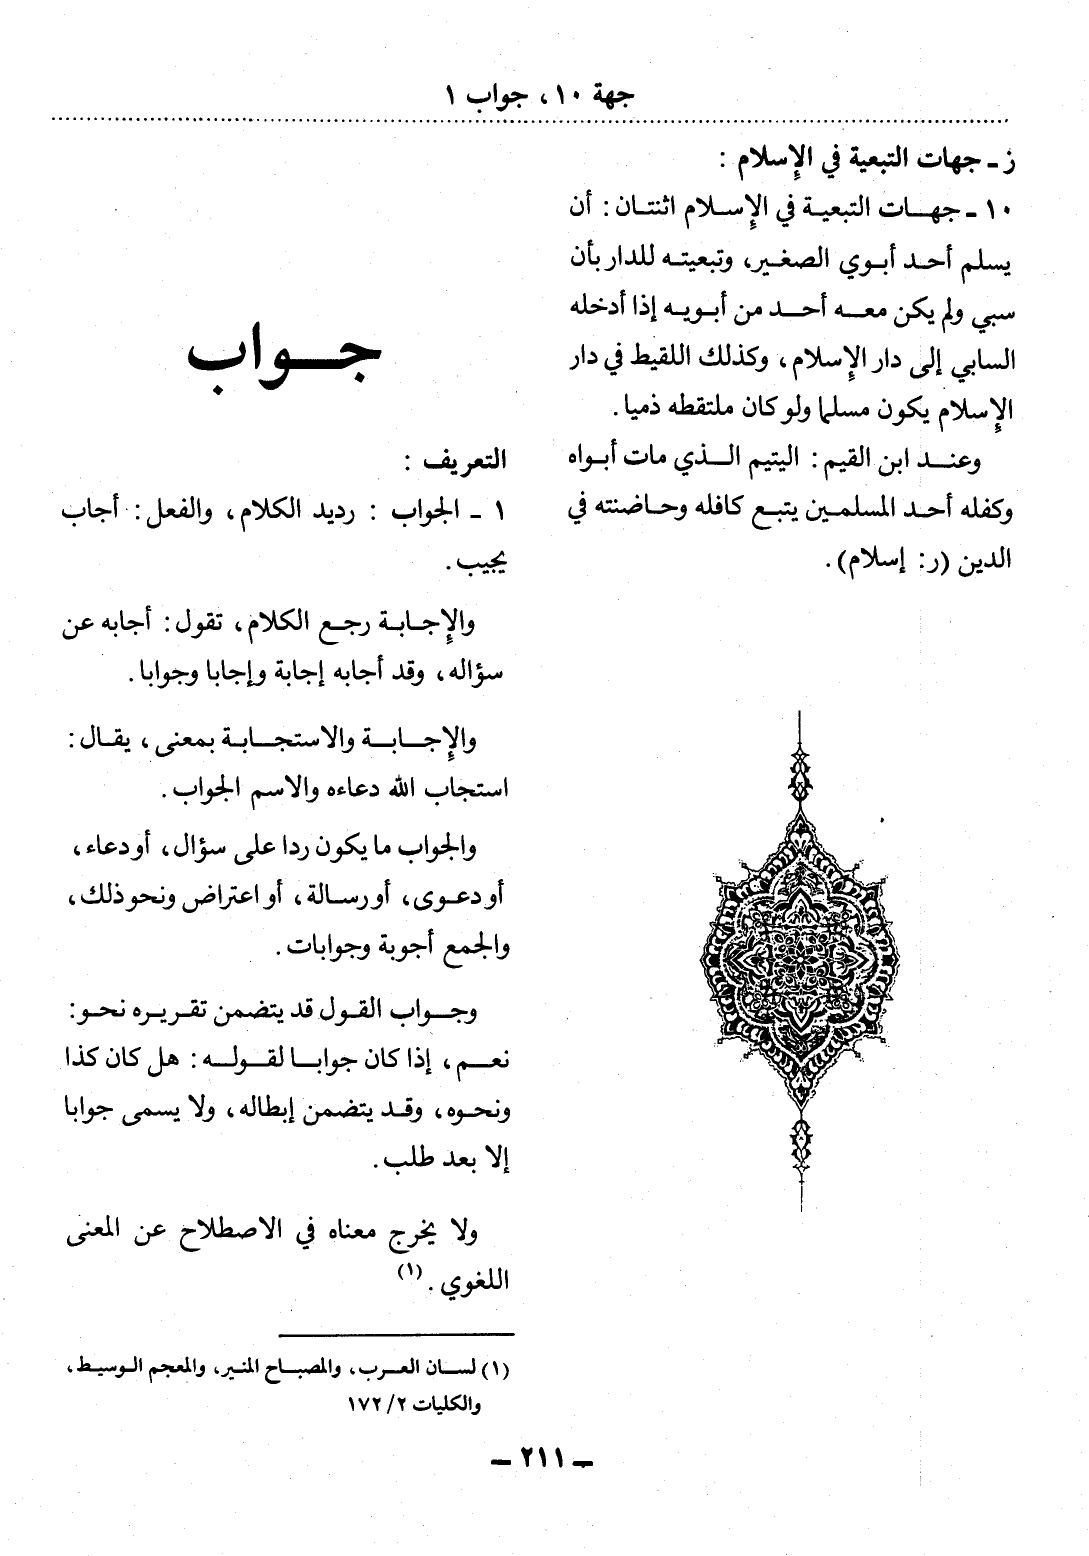 جهة ١٠، جواب ١
ز ـ جهات التبعية في الإسلام :
١٠ ـ جهـــات التبعيـة في الإسـلام اثنتـان : أن
يسلم أحـد أبـوي الصغـير، وتبعيتـه للدار بأن
سبي ولم يكن معـــه أحـــد من أبـويـه إذا أدخله
السابي إلى دار الإسلام ، وكذلك اللقيط في دار
الإسلام يكون مسلما ولو كان ملتقطه ذميا .
وعنـــد ابن القيم : اليتيم الـــذي مات أبـواه
وكفله أحـد المسلمـين يتبـع كافله وحـاضنته في
الدين (ر: إسلام) .
جــواب
التعريف :
١ ـ الجواب : رديد الكلام ، والفعل : أجاب
يجيب .
والإجـابـة رجـع الكلام ، تقول : أجابه عن
سؤاله ، وقد أجابه إجابة وإجابا وجوابا .
والإجـــابـــة والاستجـــابـة بمعنى ، يقـال :
استجاب الله دعاءه والاسم الجواب .
والجواب ما يكون ردا على سؤال ، أو دعاء ،
أو دعـوى ، أو رسـالة ، أو اعتراض ونحو ذلك ،
والجمع أجوبة وجوابات .
وجـــواب القـول قد يتضمن تقـريـره نحـو:
نعـــم ، إذا كان جوابـــا لقـولــه : هل كان كذا
ونحـوه ، وقـد يتضمن إبطاله ، ولا يسمى جوابا
إلا بعد طلب .
ولا يخرج معناه في الاصطلاح عن المعنى
اللغوي . (١)
(١) لسـان العـرب، والمصبـاح المنـير، والمعجم الـوسيـط ،
والكليات ٢/ ١٧٢
ـ ٢١١ ـ